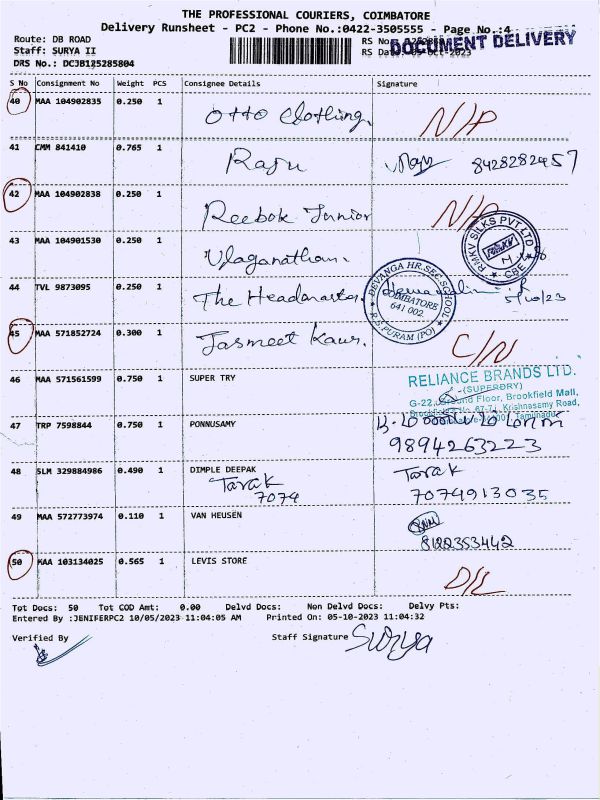 THE PROFESSIONAL COURIERS, COIMBATORE
Delivery Runsheet - PC2 - Phone No.:0422-3505555 - Page No.:4
Route: DB ROAD
RS No.
DOCUMENT DELIVERY
Staff: SURYA II
RS Date: 05-Oct-2023
DRS No.: DC3B125285804
S No Consignment No Weight PCS Consignee Details Signature
40 MAA 104902835 0.250 1 Otto Clothing. N/P
41 CMM 841410 0.765 1 Raju Raju 8428282457
42 MAA 104902838 0.250 1 Reebok Junior N/P
RMKV SILKS PVT LTD
RMKV
CBE
43 MAA 104901530 0.250 1 Ulaganathan.
44 TVL 9873095 0.250 1 The Headmaster. 5/10/23
DEVANGA HR.SEC.SCHOOL
COIMBATORE
641 002
R.S PURAM (PO)
45 MAA 571852724 0.300 1 Jasmeet Kaur. C/N
46 MAA 571561599 0.750 1 SUPER TRY
RELIANCE BRANDS LTD.
(SUPERDRY)
G-22, Ground Floor, Brookfield Mall,
Krishnasamy Road,
Tamilnadu
47 TRP 7598844 0.750 1 PONNUSAMY
9894263223
48 SLM 329884986 0.490 1 DIMPLE DEEPAK Tarak
Tarak
7074 7074913035
49 MAA 572773974 0.110 1 VAN HEUSEN
8122353442
50 MAA 103134025 0.565 1 LEVIS STORE D/L
Tot Docs: 50 Tot COD Amt: 0.00 Delvd Docs: Non Delvd Docs: Delvy Pts:
Entered By :JENIFERPC2 10/05/2023 11:04:05 AM Printed On: 05-10-2023 11:04:32
Verified By Staff Signature Surya